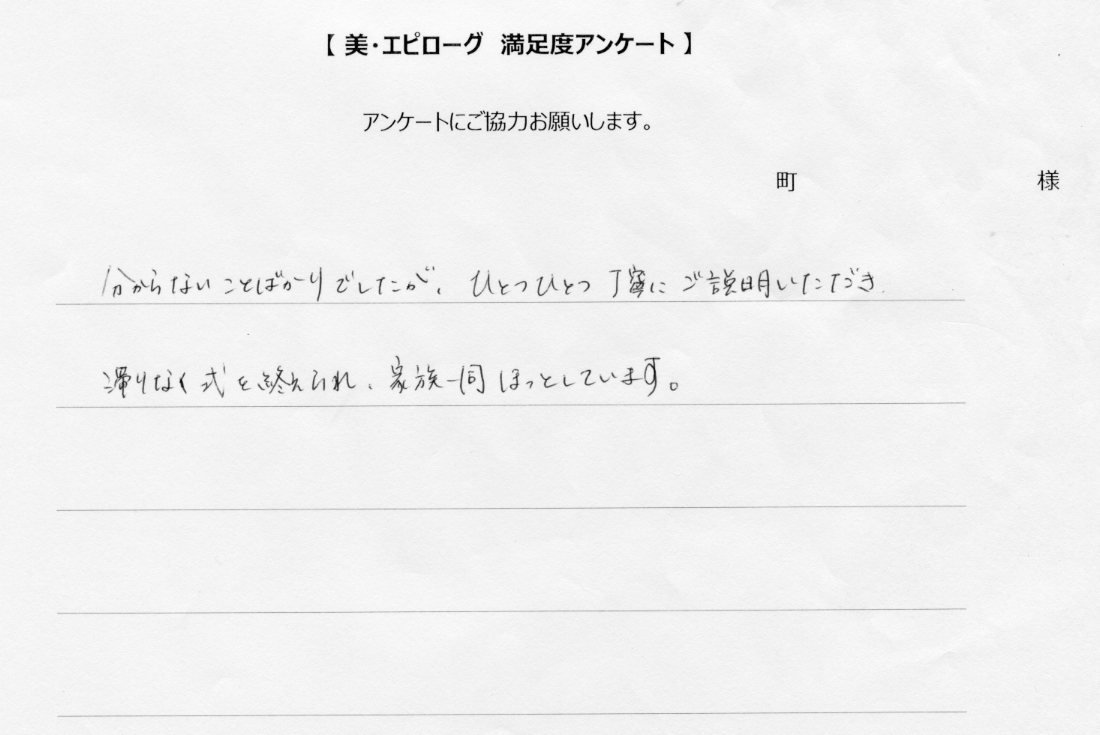 【 美・エピローグ 満足度アンケート 】
アンケートにご協力お願いします。
町 様
分からないことばかりでしたが、ひとつひとつ丁寧にご説明いただき
滞りなく式を終えられ、家族一同ほっとしています。